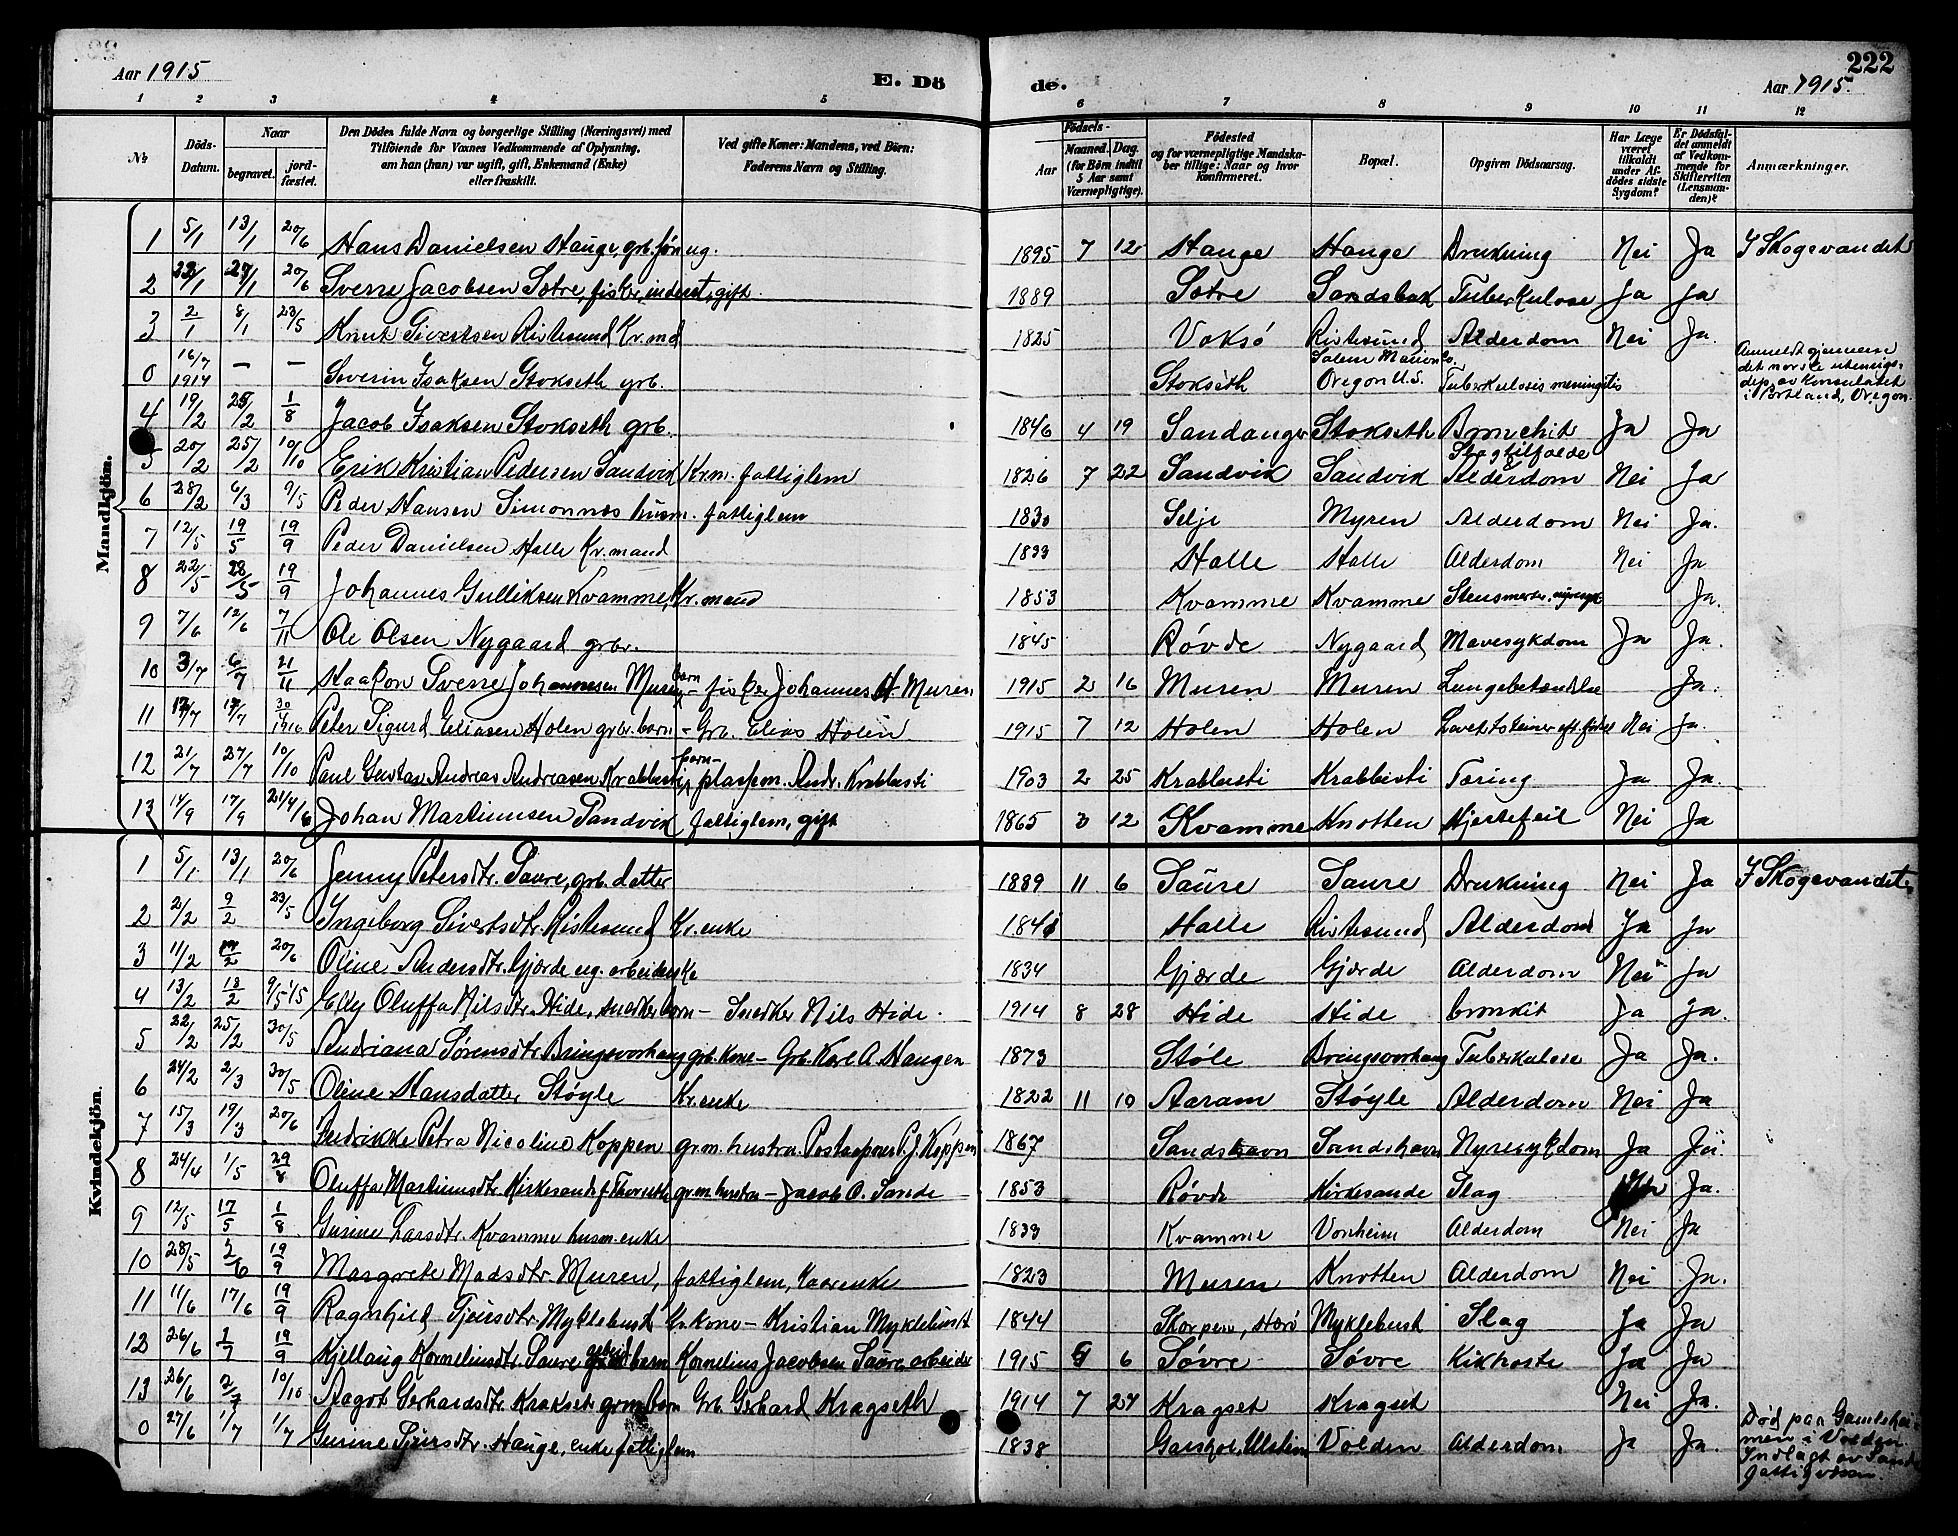 222
Aar 1915
E. Dö
de.
Aar 1915.
1 2 3 4 5 6 7 8 9 10 11 12
No
Döds-Datum.
Naar
begravet.
jordfæstet.
Den Dödes fulde Navn og borgerlige Stilling (Næringsvei) med
Tilföiende for Voxnes Vedkommende af Oplysning,
om han (hun) var ugift, gift, Enkemand (Enke)
eller fraskilt.
Ved gifte Koner: Mandens, ved Börn:
Faderens Navn og Stilling.
Födsels-
Aar
Maaned. Dag.
(for Börn indtil
5 Aar samt
Værnepligtige).
Födested
og for værnepligtige Mandska-
ber tillige: Naar og hvor
konfirmeret.
Bopæl.
Opgiven Dödsaarsag.
Har Læge
været
tilkaldt
under Af-
dödes sidste
Sygdom?
Er Dödsfal-
det anmeldt
af Vedkom-
mende for
Skifteretten
(Lensman-
den)?
Anmærkninger.
Mandkjön.
1 5/1 13/1 20/6 Hans Danielsen Hauge, grb. søn ug. 1895 7 12 Hauge Hauge Drukning Nei Ja I Skogevandet
2 22/1 27/1 20/6 Sverre Jacobsen Sætre, fisker, inderst, gift. 1889 Sætre Sandsbak Tuberkulose Ja Ja
3 2/1 8/1 23/5 Knut Sivertsen Ristesund Kr.md 1825 Voksø Ristesund Alderdom Nei Ja.
0 16/7 1914 — — Severin Isaksen Stokseth grb. Stokseth Salem Marion Co. Oregon U.S. Tuberkulosis meningitis Anmeldt gjennem det norske utenrigsdep. av Konsulatet i Portland, Oregon.
4 19/2 25/2 1/8 Jacob Isaksen Stokseth grb. 1846 4 19 Sandanger Stokseth Bronchit Ja Ja
5 20/2 25/2 10/10 Erik Kristian Pedersen Sandvik Kr.m. fattiglem 1826 7 22 Sandvik Sandvik Slagtilfælde Alderdom Nei Ja
6 28/2 6/3 9/5 Peder Hansen Simonnes husm. fattiglem 1830 Selje Myren Alderdom Nei Ja.
7 12/5 19/5 19/9 Peder Danielsen Halle Kr.mand 1833 Halle Halle Alderdom Nei Ja
8 22/5 28/5 19/9 Johannes Gulliksen Kvamme, Kr.mand 1853 Kvamme Kvamme Ja.
9 7/6 12/6 7/11 Ole Olsen Nygaard grbr. 1845 Røvde Nygaard Mavesykdom Ja Ja.
10 3/7 6/7 21/11 Haakon Sverre Johannesen Muren barn – fisker Johannes H Muren 1915 2 16 Muren Muren Lungebetændelse Ja.
11 17/7 30/4 1916 Peter Sigurd Eliasen Holen grbr. barn – Grb. Elias Holen 1915 7 12 Holen Holen Nei Ja.
12 21/7 27/7 10/10 Paul Gustav Andreas Andreasen Krabbesti barn – plassm. Andr. Krabbesti 1903 2 25 Krabbesti Krabbesti Tæring Ja Ja.
13 14/9 17/9 24/4/6 Johan Martinusen Sandvik fattiglem, gift 1865 3 12 Kvamme Knotten Hjertefeil Nei Ja
Kvindekjön.
1 5/1 13/1 20/6 Jenny Petersdtr. Saure, grb. datter 1889 11 6 Saure Saure Drukning Nei Ja I Skogevandet
2 2/2 9/2 23/5 Ingeborg Sivertsdtr. Ristesund Kr.enke Halle Ristesund Alderdom Ja Ja
3 11/2 20/6 Oline Andersdtr. Gjærde ug. arbeiderske 1834 Gjærde Gjærde Alderdom Nei Ja
4 13/2 18/2 9/5 15 Elly Oluffa Nilsdtr. Hide, snedker barn – Snedker Nils Hide. 1914 8 28 Hide Hide bronkit Ja Ja.
5 22/2 25/2 30/5 Andriana Sørensdtr. Bringsvorhaug grb. kone – Grb. Karl A. Haugen 1873 Støle Bringsvorhaug Tuberkulose Ja Ja.
6 24/2 2/3 30/5 Oline Hansdatter Støyle Kr.enke 1822 11 10 Aaram Støyle Alderdom Nei Ja
7 15/3 19/3 20/6 Fredrikke Petra Nicoline Koppen grm. hustru. Postaapner P.J. Koppen 1867 Sandshavn Sandshavn Nyresykdom Ja Ja.
8 24/4 1/5 29/8 Oluffa Martinusdtr. Kirkesande f. Thorseth grm. hustru – Jacob O. Sande 1853 Røvde Kirkesande Slag Ja.
9 12/5 17/5 1/8 Gurine Larsdtr. Kvamme husm. enke 1833 Kvamme Vonheim Alderdom Nei Ja
10 28/5 2/6 19/9 Margrete Madsdtr. Muren, fattiglem, enke 1823 Muren Knotten Alderdom Nei Ja.
11 11/6 17/6 19/9 Ragnhild Myklebust Kr.kone – Kristian Myklebust 1844 Skorpen, Herø Myklebust Slag Ja Ja
12 26/6 1/7 19/9 Kjellaug Korneliusdtr. Saure arbeid. barn Kornelius Jacobsen Saure arbeider 1915 6 Søvre Søvre Kikhoste Ja Ja
13 26/6 2/7 10/10 Aagot Gerhardsdtr. Krakset grm. barn Grb. Gerhard Kragseth 1914 7 27 Kragset Kragset Nei Ja.
0 27/6 1/7 1/7 Gurine Hauge, enke fattiglem 1838 Volden Alderdom Ja Ja. Død paa Gamlehjemmen i Volden Indlagt av Sande fattigvæsen.